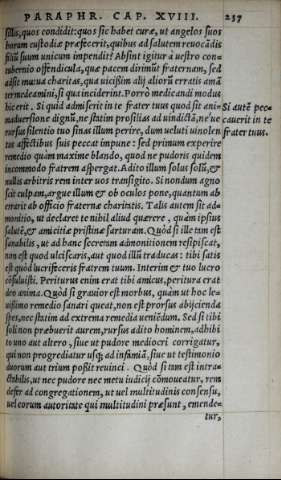 PARAPHR. CAP. XVIII. 237
sillis, quos condidit: quos sic habet curæ, ut angelos suos
horum custodiæ præfecerit, quibus ad salutem reuocãdis
filiũ suum unicum impendit? Absint igitur à uestro con-
tubernio offendicula, quæ pacem dirimũt fraternam, sed
adsit mutua charitas, quæ uicißim alij aliorũ erratis amã
ter medeamini, si qua inciderint. Porrò medicandi modus
hic erit. Si quid admiserit in te frater tuus quod sit ani-
maduersione dignũ, ne statim prosilias ad uindictã, ne ue
rursus silentio tuo sinas illum perire, dum ueluti uinolen
tus affectibus suis peccat impune: sed primum experire
remedio quàm maxime blando, quod ne pudoris quidem
incommodo fratrem aspergat. Adito illum solus solũ, &
nullis arbitris rem inter uos transigito. Si nondum agno
scit culpam, argue illum & ob oculos pone, quantum ab
errarit ab officio fraternæ charitatis. Talis autem sit ad-
monitio, ut declaret te nihil aliud quærere, quàm ipsius
salutẽ, & amicitiæ pristinæ sarturam. Quòd si ille tam est
sanabilis, ut ad hanc secretam admonitionem resipiscat,
non est quod ulciscaris, aut quod illũ traducas: tibi satis
est quòd lucrifeceris fratrem tuum. Interim & tuo lucro
cõsuluisti. Periturus enim erat tibi amicus, peritura erat
deo anima. Quòd si grauior est morbus, quàm ut hoc le-
uissimo remedio sanari queat, non est prorsus abijcienda
spes, nec statim ad extrema remedia ueniẽdum. Sed si tibi
soli non præbuerit aurem, rursus adito hominem, adhibi
to uno aut altero, siue ut pudore mediocri corrigatur,
qui non progrediatur usq; ad infamiã, siue ut testimonio
duorum aut trium poßit reuinci. Quòd si tam est intra-
ctabilis, ut nec pudore nec metu iudicij cõmoueatur, rem
defer ad congregationem, ut uel multitudinis consensu,
uel eorum autoritate qui multitudini præsunt, emende-
tur,
Si autẽ pec=
cauerit in te
frater tuus.